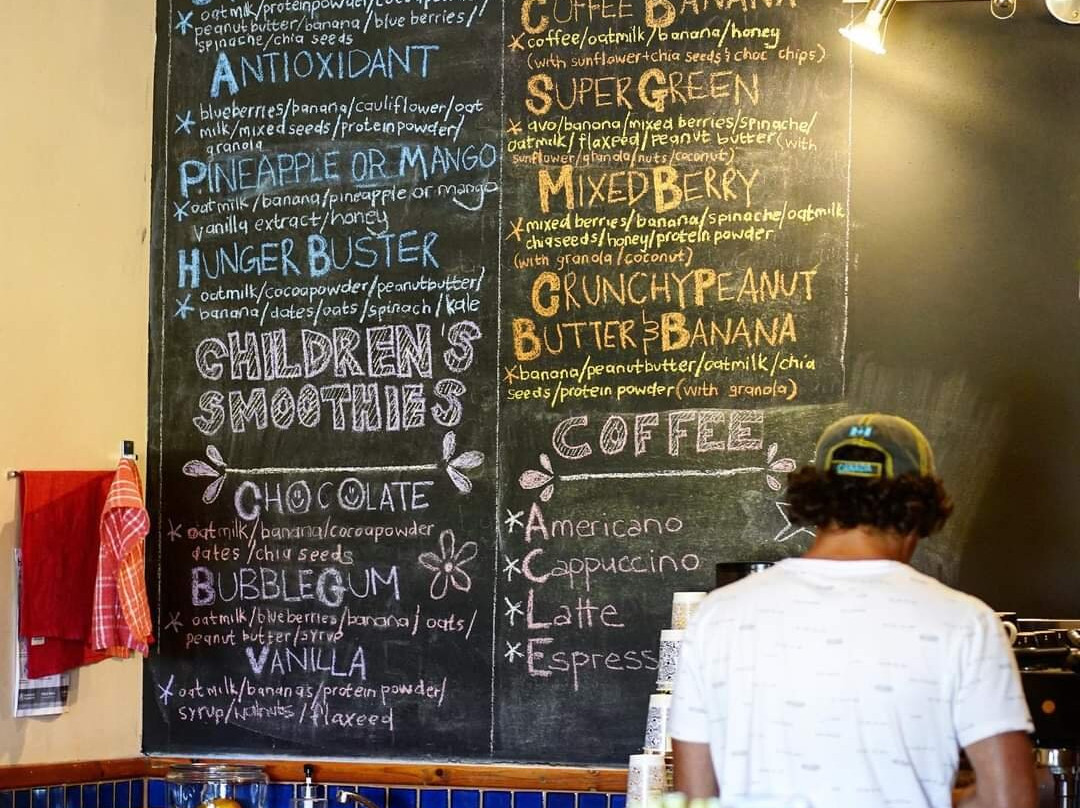 oatmilk/proteinpowder/
peanut butter/banana/blue berries/
spinache/chia seeds
ANTIOXIDANT
* blueberries/banana/cauliflower/oat
milk/mixed seeds/protein powder/
granola
PINEAPPLE OR MANGO
* oatmilk/banana/pineapple or mango
vanilla extract/honey
HUNGER BUSTER
* oatmilk/cocoapowder/peanutbutter/
banana/dates/oats/spinach/kale
CHILDREN'S
SMOOTHIES
CHOCOLATE
* oatmilk/banana/cocoapowder
dates/chia seeds
BUBBLEGUM
* oatmilk/blueberries/banana/oats/
peanut butter/syrup
VANILLA
* oatmilk/bananas/protein powder/
syrup/walnuts/flaxeed
COFFEE BANANA
* coffee/oatmilk/banana/honey
(with sunflower+chia seeds & choc chips)
SUPER GREEN
* avo/banana/mixed berries/spinache/
oatmilk/flaxeed/peanut butter (with
sunflower/granola/nuts/coconut)
MIXED BERRY
* mixed berries/banana/spinache/oatmilk
chiaseeds/honey/protein powder
(with granola/coconut)
CRUNCHY PEANUT
BUTTER & BANANA
* banana/peanutbutter/oatmilk/chia
seeds/protein powder (with granola)
COFFEE
* Americano
* Cappuccino
* Latte
* Espress
CANADA